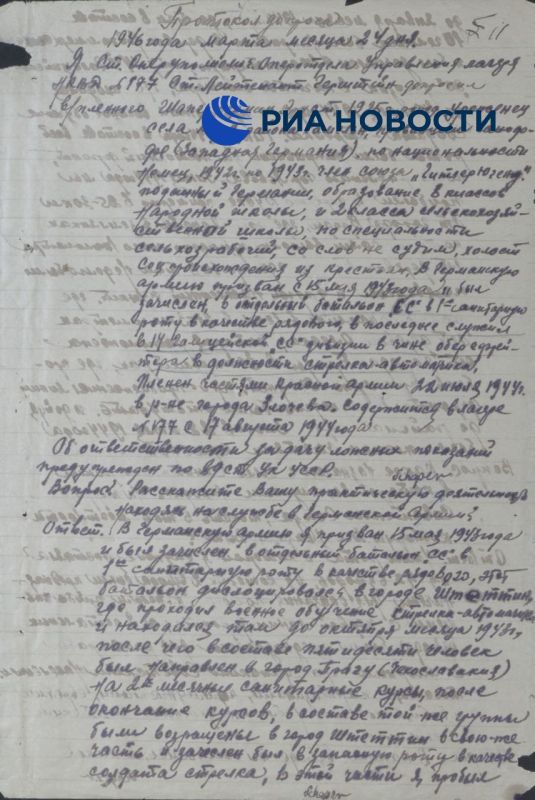 Протокол допроса
11
1946 года марта месяца 24 дня.
Я Ст. Оперуполномоч. Оперотдела Управления лагеря
МВД № 177 Ст. Лейтенант допросил
в/пленного
села
РИА НОВОСТИ
(Западная Германия). по национальности
немец, 1942г. по 1943г. член союза "Гитлерюгенд"
подданный Германии, образование, 8 классов
народной школы, и 2 класса сельскохозяй-
ственной школы, по специальности
сельхозрабочий, со слов не судим, холост
соцпроисхождения из крестьян, В Германскую
армию призван с 15 мая 1943 года и был
зачислен в отдельный батальон "СС" в 1ую санитарную
роту в качестве рядового, в последнее служил
в 14 Галицийской "СС" дивизии в чине оберефрей-
тера в должности стрелка-автоматчика,
Пленен частями Красной армии 22 июля 1944г.
в р-не города Злочева. Содержится в лагере
№ 177 с 17 августа 1944 года
Об ответственности за дачу ложных показаний
предупрежден по УК УССР.
Вопрос: Расскажите Вашу практическую деятельность
находясь на службе в Германской Армии?
Ответ. В Германскую армию я призван 15 мая 1943 года
и был зачислен в отдельный батальон "СС" в
1ую санитарную роту в качестве рядового, этот
батальон дислоцировался в городе Штеттин,
где проходил военное обучение стрелка-автоматчика
и находился там до октября месяца 1943г,
после чего в составе пятидесяти человек
был направлен в город Прагу (Чехославакия)
на 2х месячные санитарные курсы, после
окончание курсов, в составе той же группы
были возвращены в город Штеттин в свою же
часть и зачислен был в запасную роту в качестве
солдата стрелка, В этой части я, пробыл